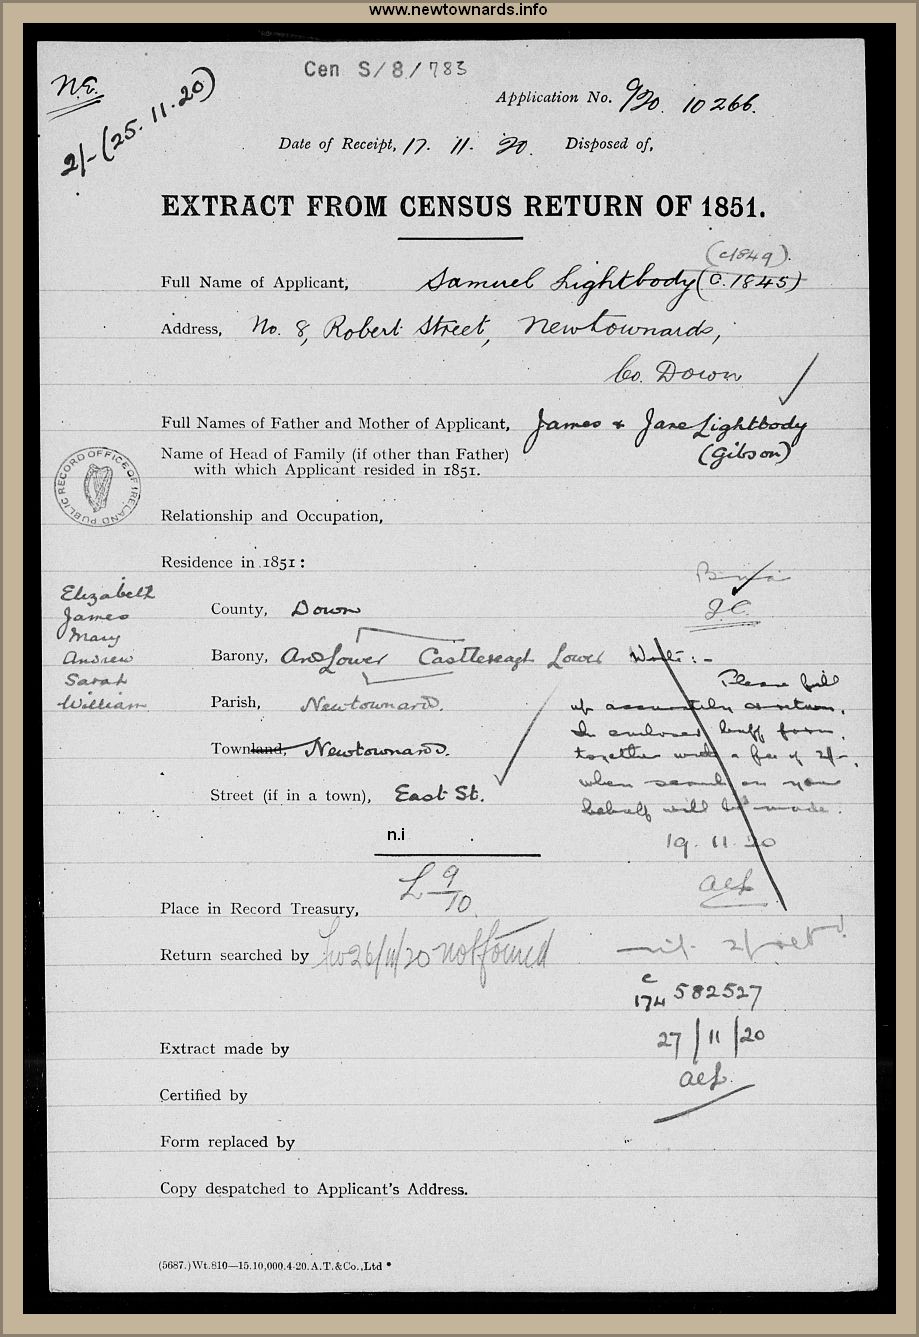 www.newtownards.info
Cen S/8/783
N.E.
2/- (25.11.20)
Application No. 9/20. 10266.
Date of Receipt, 17. 11. 20. Disposed of,
EXTRACT FROM CENSUS RETURN OF 1851.
(c1849).
Full Name of Applicant, Samuel Lightbody (C. 1845)
Address, No. 8, Robert Street, Newtownards,
Co. Down
Full Names of Father and Mother of Applicant, James & Jane Lightbody
(Gibson)
Name of Head of Family (if other than Father)
with which Applicant resided in 1851.
PUBLIC RECORD OFFICE OF IRELAND
Relationship and Occupation,
Residence in 1851:
Elizabeth
James
Mary
Andrew
Sarah
William
County, Down
J.C.
Barony, Ards Lower Castlereagh Lower
Write:-
Please fill
up accurately & return,
the enclosed buff form,
together with a fee of 2/-,
when search on your
behalf will be made.
19.11.20
aef
Parish, Newtownards.
Townland, Newtownards.
Street (if in a town), East St.
n.i
L 9/10.
Place in Record Treasury,
Return searched by 26/11/20 not found
nil 2/- retd.
c
174 582527
27/11/20
aef.
Extract made by
Certified by
Form replaced by
Copy despatched to Applicant's Address.
(5687.)Wt.810—15.10,000.4-20.A.T.&Co.,Ltd